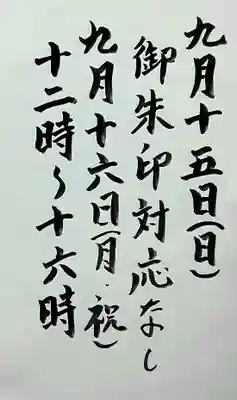 九月十五日(日)
御朱印対応なし
九月十六日(月·祝)
十二時〜十六時